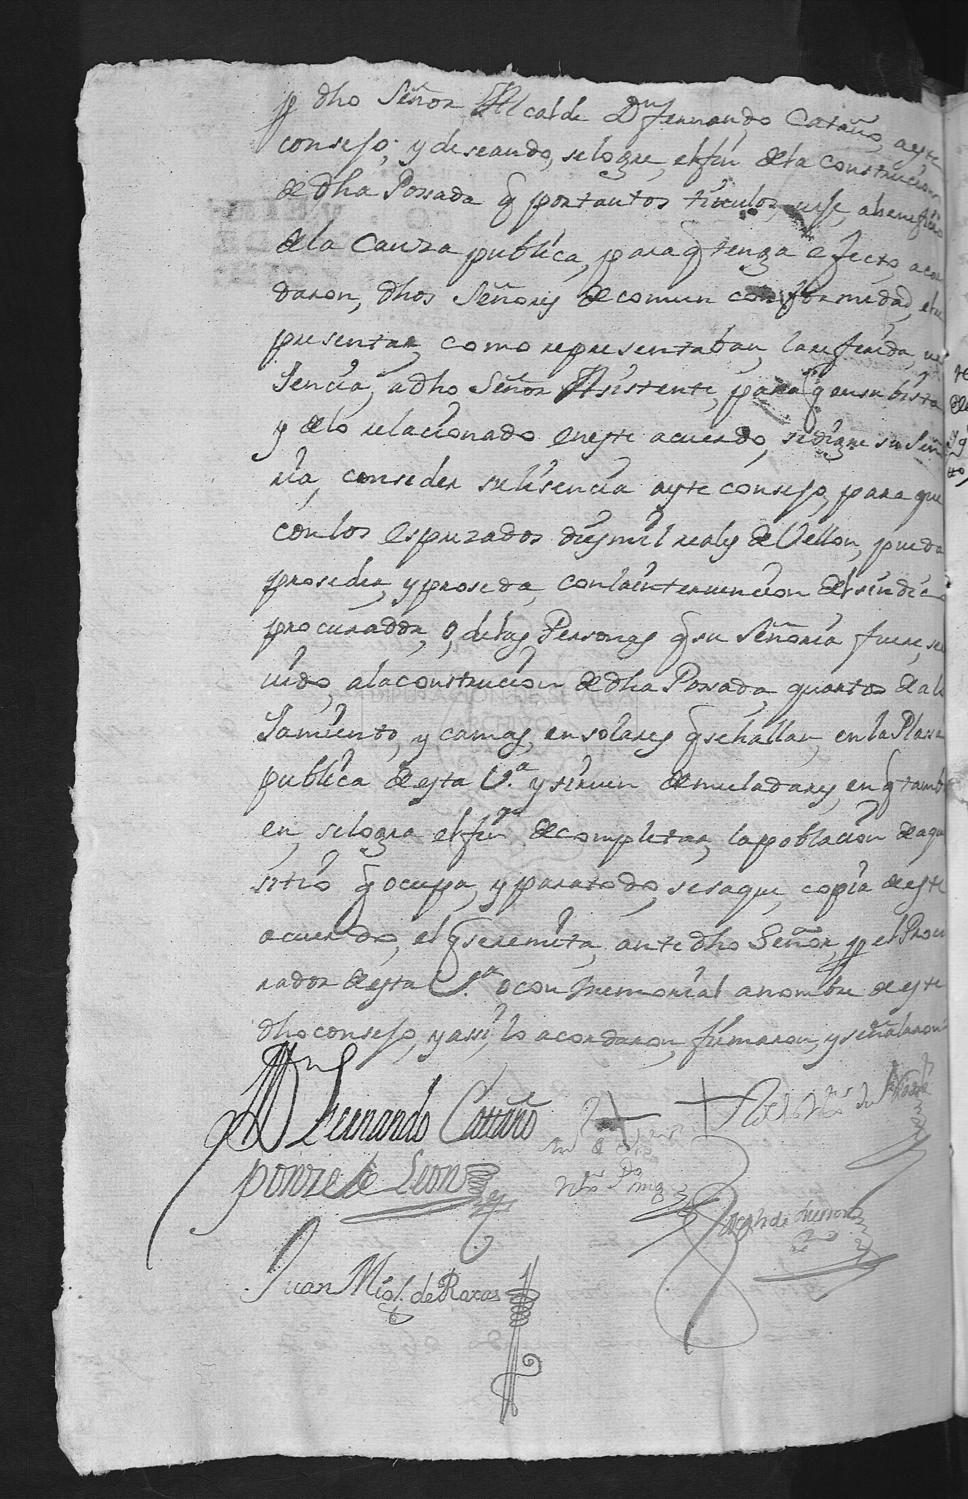 p dho Señor Alcalde Dn fernando Cataño, aeste
consejo; y deseando, selogre, elfin dela construcion
de dha Possada q portantos titulos, abeneficio
dela Cauza publica, para q tenga efecto, acor
daron, dhos Señores de comun conformidad, el re
presentar, como representaban, lareferida, 
sencia, a dho Señor Asistente, para q ensu bista
y delo relacionado eneste acuerdo, sedigne su Seño
ria, conseder su lisencia aeste consejo, para que
conlos espresados diesmil reales de Vellon, pueda
proseder, y proseda, conlaintervencion del sindico
procurador, o, delas Personas q su Señoria fuere, ser
uido, alaconstrucion de dha Possada, quartos de alo
Jamiento, y camas, ensolares q sehallan, en la Plassa
publica de esta Va. y siruen demuladares, en q tambi
en, selogra elfin de completar, lapoblacion deaquel
sitio q ocupa, y paratodo, sesaque, copia deeste
acuerdo, el q seremita, ante dho Señor, p el Procu
rador de esta Va. o con memorial a nombre de este
dho consejo, y assi, lo acordaron, firmaron, y señalaron
Dn Fernando Cataño
ponze de Leon
Juan Migl. de Roxas